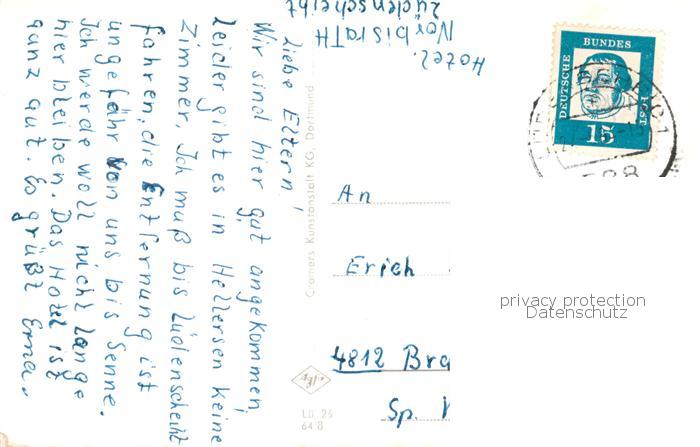 Hotel.
Norbisrath
Lüdenscheidt
Liebe Eltern!
Wir sind hier gut angekommen,
leider gibt es in Hellersen keine
Zimmer. Ich muß bis Lüdenscheidt
fahren, die Entfernung ist
ungefähr von uns bis Senne.
Ich werde woll nicht lange
hier bleiben. Das Hotel ist
ganz gut. Es grüßt Erna.
Cramers Kunstanstalt KG, Dortmund
DEUTSCHE BUNDESPOST
15
An
Erich
4812 Bra
Sp.
LÜ. 26
64/8
privacy protection
Datenschutz